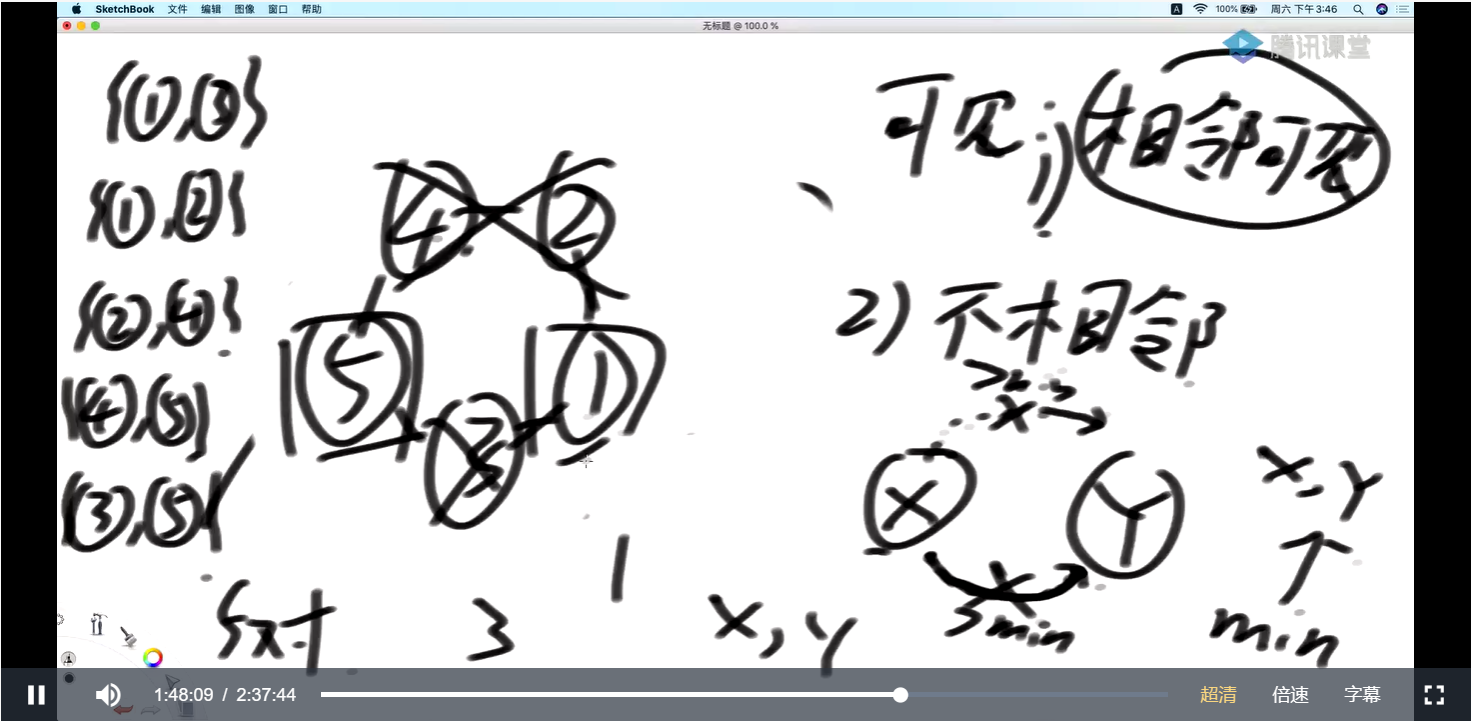 SketchBook 文件 编辑 图像 窗口 帮助
A 100% 周六 下午3:46
无标题 @ 100.0 %
腾讯课堂
{①,③}
{①,②}
{②,④}
{④,⑤}
{③,⑤}
4 2
5 1
3
可见 1) 相邻可见
2) 不相邻
X Y
X, Y
min
min
3
X, Y
1:48:09 / 2:37:44 超清 倍速 字幕